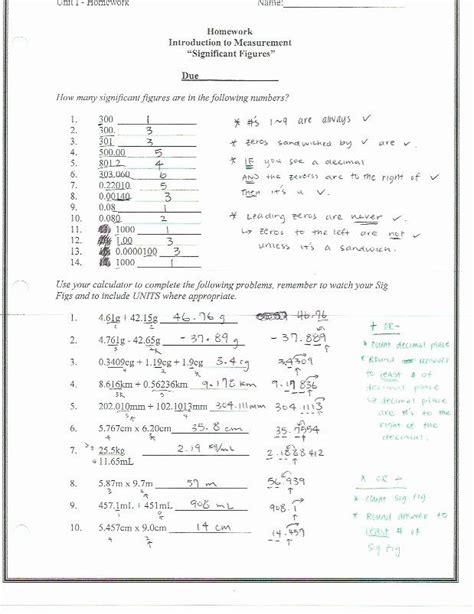 Unit I - Homework Name:
Homework
Introduction to Measurement
"Significant Figures"
Due
How many significant figures are in the following numbers?
1. 300 1
2. 300. 3
3. 301 3
4. 500.00 5
5. 801.2 4
6. 303.060 6
7. 0.22010 5
8. 0.00140 3
9. 0.08 1
10. 0.080 2
11. 1000 1
12. 1.00 3
13. 0.0000100 3
14. 1000 1
* #'s 1~9 are always ✓
* zeros sandwiched by ✓ are ✓
* IF you see a decimal
AND the zeros are to the right of ✓
Then it's a ✓
* Leading zeros are never ✓
↳ zeros to the left are not ✓
unless it's a sandwich.
Use your calculator to complete the following problems, remember to watch your Sig
Figs and to include UNITS where appropriate.
1. 4.61g + 42.15g 46.76 g 46.76
2. 4.761g - 42.65g - 37.89 g - 37.889
3. 0.3409cg + 1.19cg + 1.9cg 3.4 cg 3.4309
4. 8.616km + 0.56236km 9.178 km 9.17836
5. 202.010mm + 102.1013mm 304.111mm 304.1113
6. 5.767cm x 6.20cm 35.8 cm 35.7554
7. 25.5kg 2.19 kg/mL 2.1888412
÷ 11.65mL
8. 5.87m x 9.7m 57 m 56.939
9. 457.1mL + 451mL 908 mL 908.1
10. 5.457cm x 9.0cm 14 cm 14.459
+ OR -
* Count decimal place
* Round answer
to least # of
decimal place
decimal place
are #'s to the
right of the
decimal.
x OR ÷
* Count Sig Fig
* Round answer to
least # of
Sig Fig